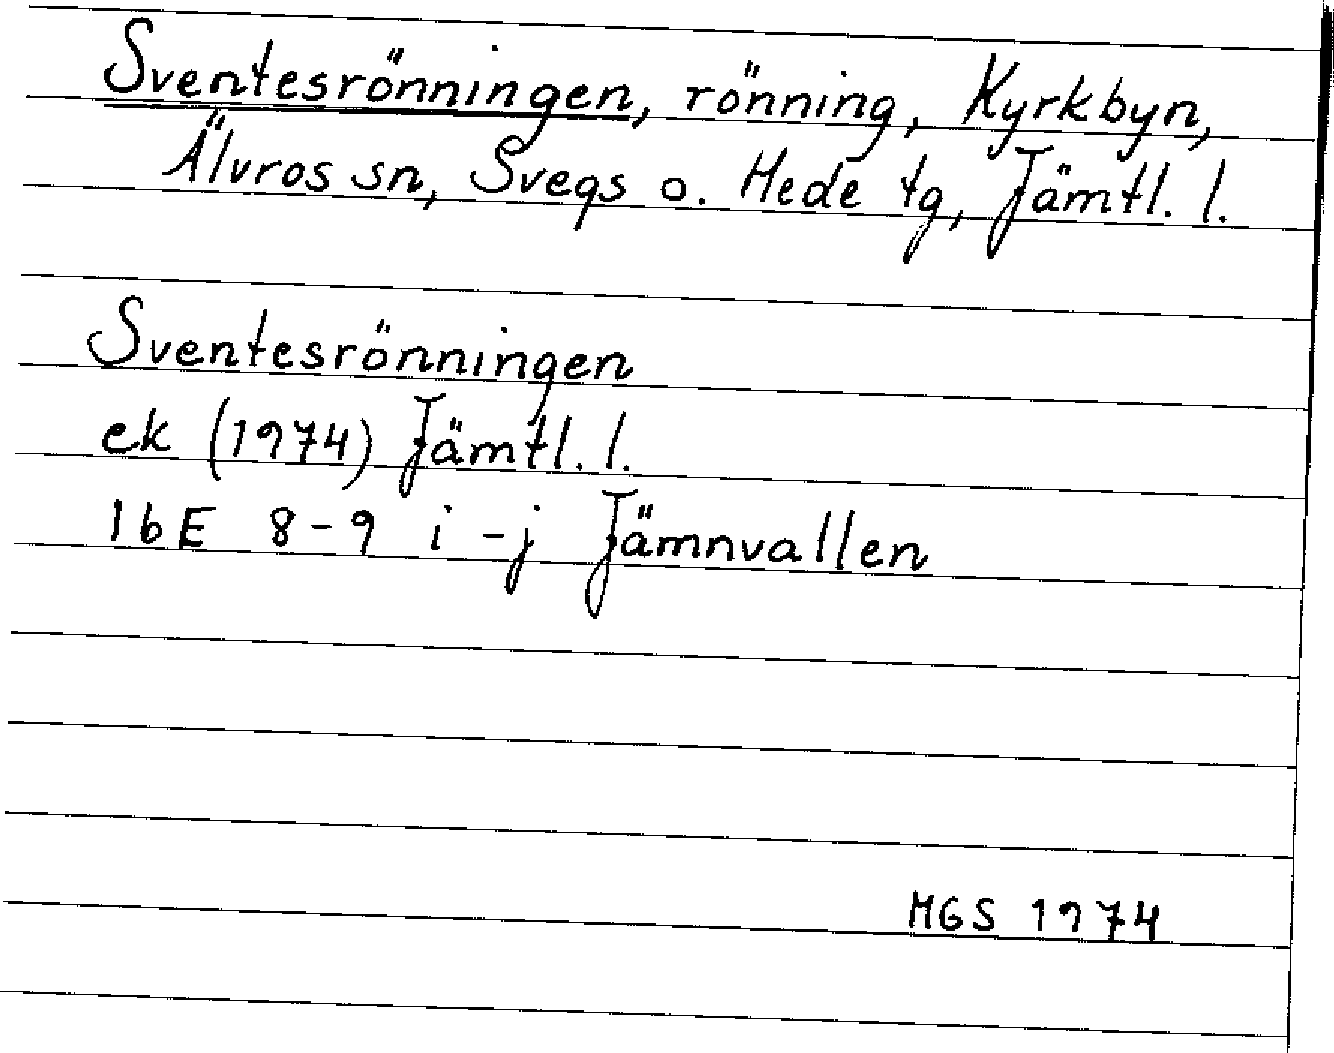 Sventesrönningen, rönning, Kyrkbyn,
Älvros sn, Svegs o. Hede tg, Jämtl. l.
Sventesrönningen
ek (1974) Jämtl. l.
16E 8-9 i-j Jämnvallen
MGS 1974